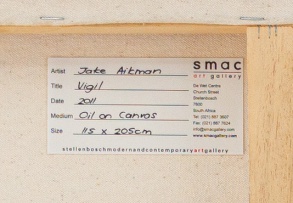 smac
art gallery
Artist Jake Aikman
Title Vigil
Date 2011
Medium Oil on Canvas
Size 115 x 205cm
De Wet Centre
Church Street
Stellenbosch
7600
South Africa
Tel: (021) 887 3607
Fax: (021) 887 7624
info@smacgallery.com
www.smacgallery.com
stellenboschmodernandcontemporaryartgallery